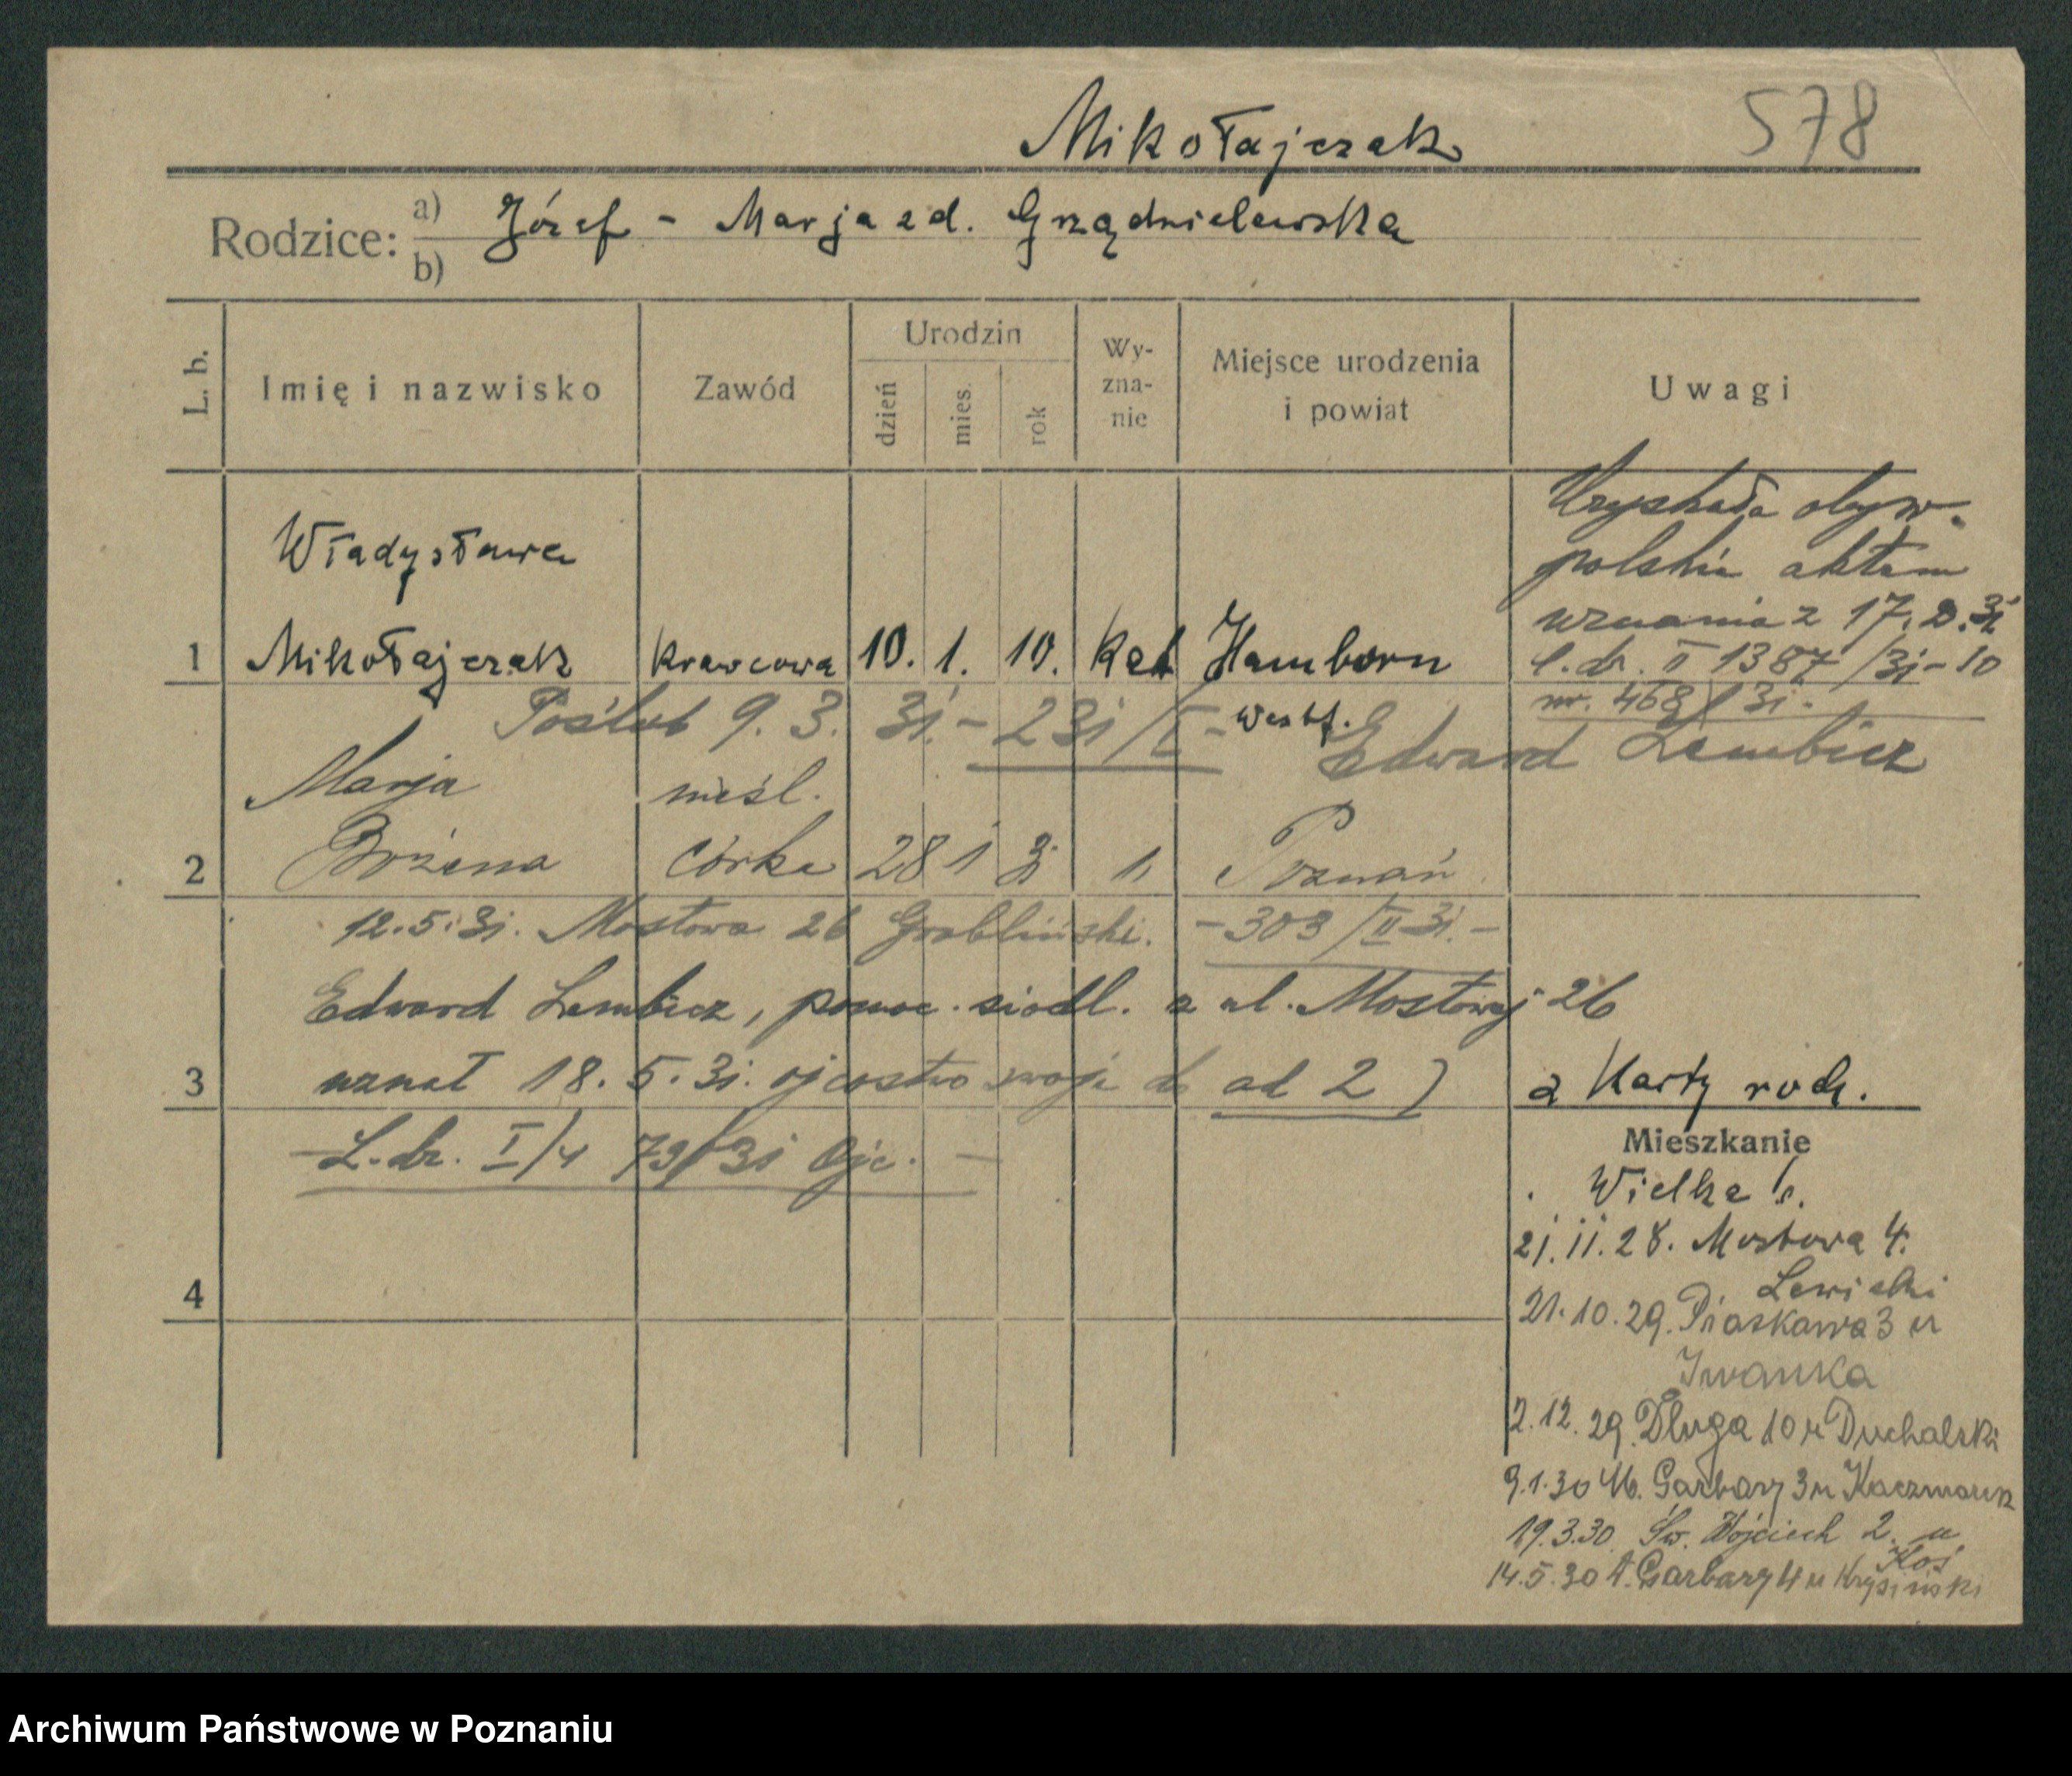 Mikołajczak 578
Rodzice: a) Józef - Marja z d. Grządzielewska
b)
L. b. Imię i nazwisko Zawód Urodzin dzień mies. rok Wy-zna-nie Miejsce urodzenia i powiat Uwagi
Uzyskała obyw.
polskie aktem
uznania z 17. 2. 31
L. dz. II 1387/31-10
nr. 468/31.
Władysława
1 Mikołajczak Krawcowa 10. 1. 10. Kat Hamborn
Westf.
Poślub 9. 3. 31. - 231/I - Edward Lembicz
Marja nieśl.
2 Bożena córka 28 1 31 1, Poznań
12.5.31. Mostowa 26 Grobliński. - 303/II 31. -
Edward Lembicz, pomoc. siodl. z ul. Mostowej 26
3 uznał 18. 5. 31. ojcostwo swoje do ad 2)
L. dz. I/4 73/31 Ojc. -
4
z Karty rodz.
Mieszkanie
Wielka
21.11.28. Mostowa 4.
Lewicki
21.10.29. Piaskowa 3 u
Iwanka
2.12.29. Długa 10 u Duchalski
9.1.30 W. Garbary 3 u Kaczmarek
19.3.30. Św. Wojciech 2. u
Koś
14.5.30 W. Garbary 4 u Krysiński
Archiwum Państwowe w Poznaniu